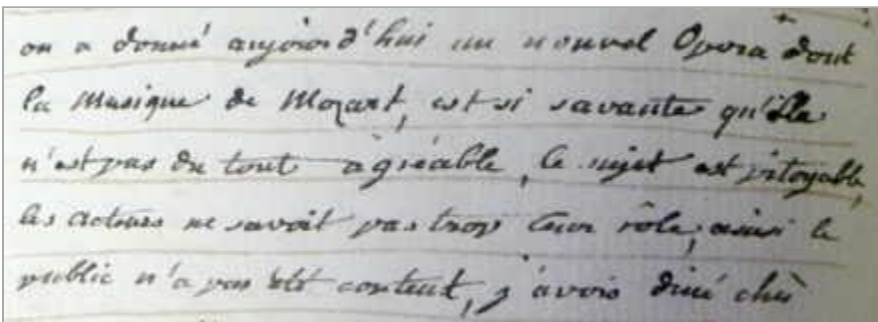 on a donné aujourd'hui un nouvel Opera dont
la Musique de Mozart, est si savante qu'elle
n'est pas du tout agréable, le sujet est pitoyable,
les acteurs ne savoit pas trop leur rôle, ainsi le
public n'a pas été content, j'avois diné chés